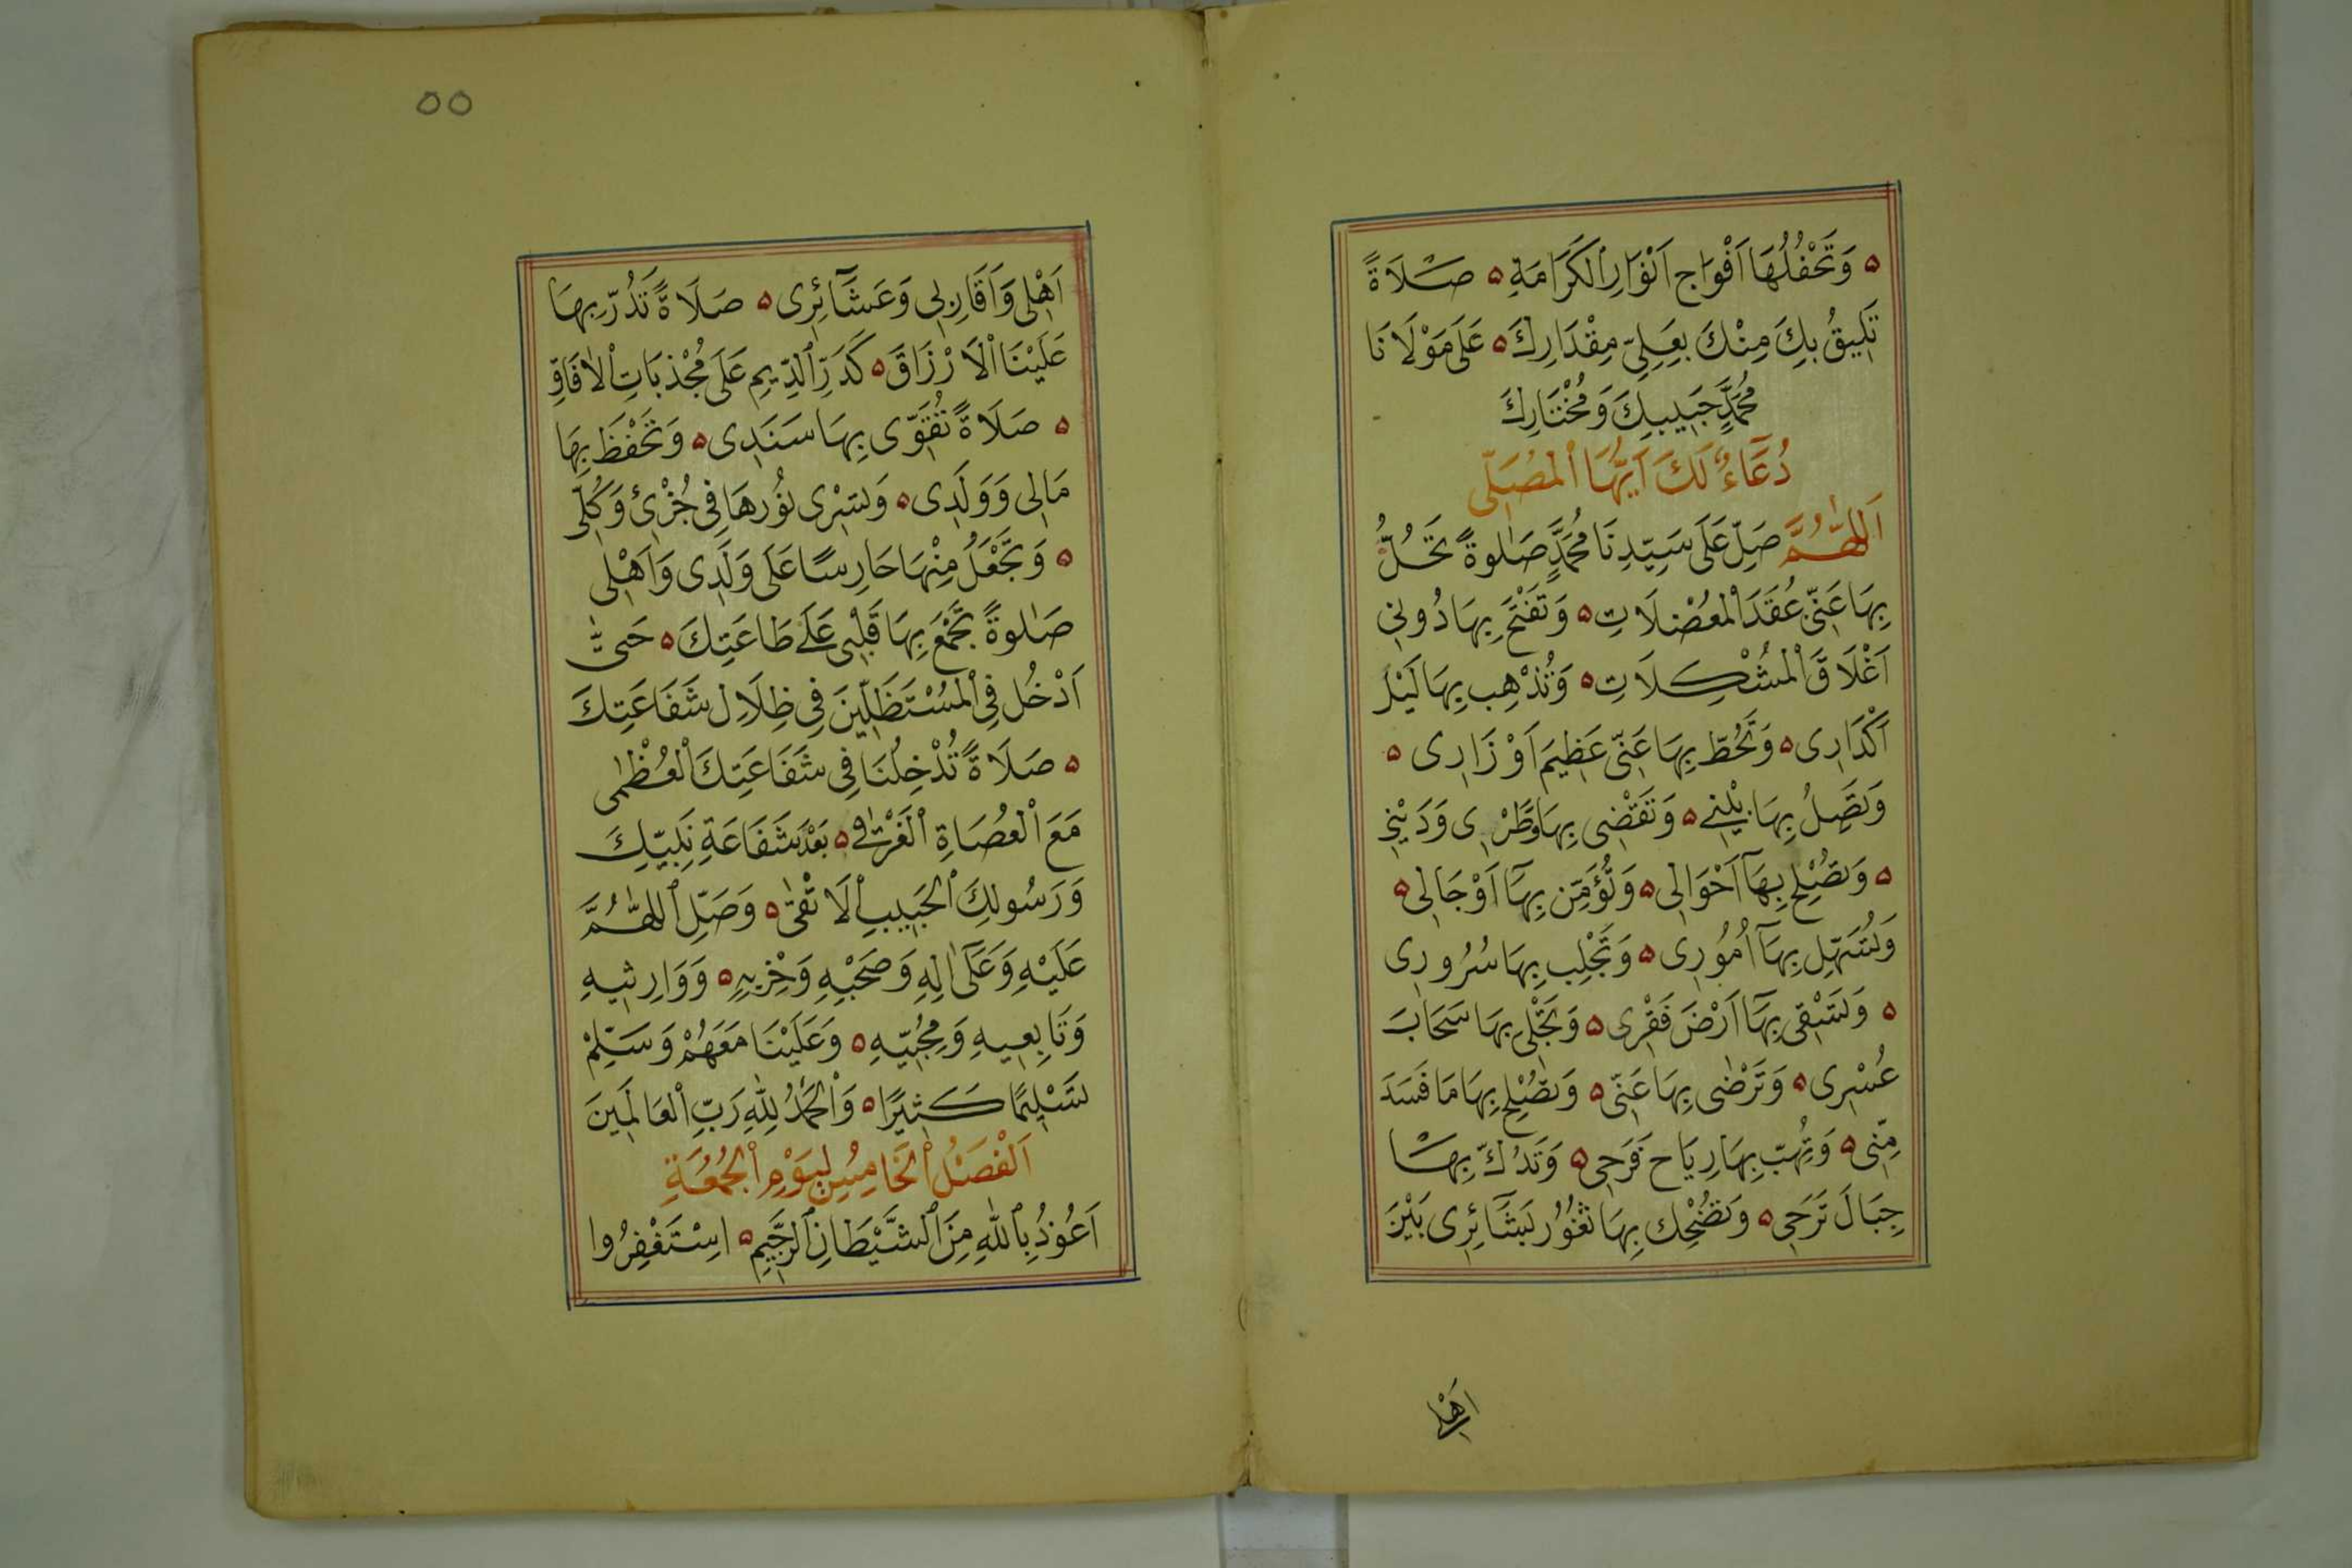 ه وَتَحْفُلُهَا اَفْوَاج اَنْوَارِ الْكَرَامَةِ ه صَلَاةً
تَلِيقُ بِكَ مِنْكَ بِعَلِىِّ مِقْدَارِكَ ه عَلَى مَوْلَانَا
مُحَمَّدٍ حَبِيبِكَ وَمُخْتَارِكَ
دُعَآءٌ لَكَ اَيُّهَا الْمُصَلِّى
اَللّٰهُمَّ صَلِّ عَلَى سَيِّدِنَا مُحَمَّدٍ صَلٰوةً تَحُلُّ
بِهَا عَنِّى عُقَدَ الْمُعْضِلَاتِ ه وَتَفْتَحَ بِهَا دُونِى
اَغْلَاقَ الْمُشْكِلَاتِ ه وَتُذْهِب بِهَا لَيْلَ
اَكْدَارِى ه وَتَحُطّ بِهَا عَنِّى عَظِيمَ اَوْزَارِى ه
وَتَصِلُ بِهَا بَيْنِى ه وَتَقْضِى بِهَا وَطَرِى وَدَيْنِى
ه وَتُصْلِح بِهَآ اَحْوَالِى ه وَتُؤَمِّن بِهَآ اَوْجَالِى ه
وَتُسَهِّل بِهَآ اُمُوُرِى ه وَتَجْلِب بِهَا سُرُورِى
ه وَتَسْقِى بِهَآ اَرْضَ فَقْرِى ه وَتَجْلِى بِهَا سَحَابَ
عُسْرِى ه وَتَرْضٰى بِهَا عَنِّى ه وَتُصْلِح بِهَا مَا فَسَدَ
مِنِّى ه وَتُهِبّ بِهَا رِيَاح فَرَحِى ه وَتَدُكّ بِهَا
جِبَالَ تَرَحِى ه وَتُضْحِك بِهَا ثُغُوُر بَشَآئِرِى بَيْنَ
اَهْلِى
٥٥
اَهْلِى وَاَقَارِبِى وَعَشَآئِرِى ه صَلَاةً تَدُرّ بِهَا
عَلَيْنَا الْاَرْزَاقَ ه كَدَرِّ الدِّيمِ عَلَى مُجْذِبَاتِ الْاٰفَاقِ
ه صَلَاةً تُقَوِّى بِهَا سَنَدِى ه وَتَحْفَظَ بِهَا
مَالِى وَوَلَدِى ه وَتَسْرِى نُوُرهَا فِى جُزْئِ وَكُلِّى
ه وَتَجْعَلُ مِنْهَا حَارِسًا عَلَى وَلَدِى وَاَهْلِى
صَلٰوةً تَجْمَعَ بِهَا قَلْبِى عَلَى طَاعَتِكَ ه حَتّٰى
اَدْخُل فِى الْمُسْتَظِلِّينَ فِى ظِلَاِل شَفَاعَتِكَ
ه صَلَاةً تُدْخِلُنَا فِى شَفَاعَتِكَ الْعُظْمٰى
مَعَ الْعُصَاةِ الْغَرْقٰى ه بَعْدَ شَفَاعَةِ نَبِيِّكَ
وَرَسُولِكَ الْحَبِيبِ الْاَتْقٰى ه وَصَلِّ اللّٰهُمَّ
عَلَيْهِ وَعَلَىٓ اٰلِهِ وَصَحْبِهِ وَحِزْبِهِ ه وَوَارِثِيهِ
وَتَابِعِيهِ وَمُحِبِّيهِ ه وَعَلَيْنَا مَعَهُمْ وَسَلِّمْ
تَسْلِيمًا كَثِيرًا ه وَالْحَمْدُ لِلّٰهِ رَبِّ الْعَالَمِينَ
اَلْفَصْلُ الْخَامِسُ لِيَوْمِ الْجُمُعَةِ
اَعُوْذُ بِاللّٰهِ مِنَ الشَّيْطَانِ الرَّجِيمِ ه اسْتَغْفِرُوا